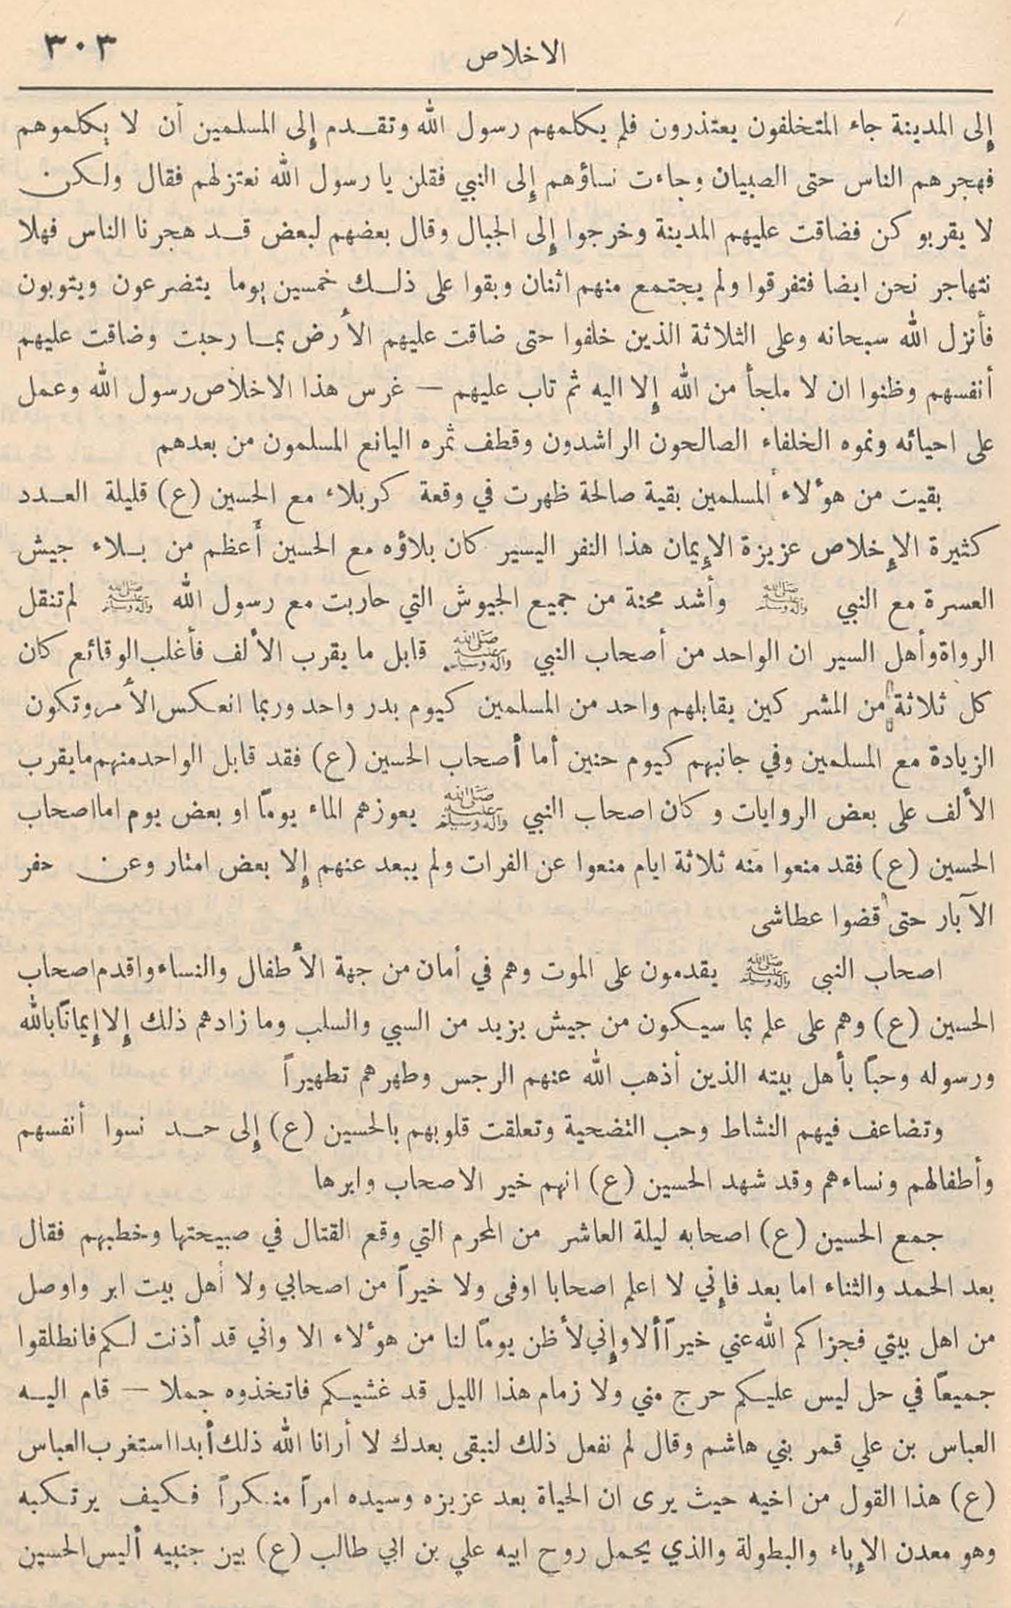 الاخلاص ٣٠٣
إلى المدينة جاء المتخلفون يعتذرون فلم يكلمهم رسول الله وتقـدم إلى المسلمين أن لا يكلموهم
فهجرهم الناس حتى الصبيان وجاءت نساؤهم إلى النبي فقلن يا رسول الله نعتزلهم فقال ولكن
لا يقربو كن فضاقت عليهم المدينة وخرجوا إلى الجبال وقال بعضهم لبعض قـد هجرنا الناس فهلا
نتهاجر نحن ايضا فتفرقوا ولم يجتمع منهم اثنان وبقوا على ذلـك خمسين يوما يتضرعون ويتوبون
فأنزل الله سبحانه وعلى الثلاثة الذين خلفوا حتى ضاقت عليهم الأرض بمـا رحبت وضاقت عليهم
أنفسهم وظنوا ان لا ملجأ من الله إلا اليه ثم تاب عليهم — غرس هذا الاخلاص رسول الله وعمل
على احيائه ونموه الخلفاء الصالحون الراشدون وقطف ثمره اليانع المسلمون من بعدهم
بقيت من هؤلاء المسلمين بقية صالحة ظهرت في وقعة كربلاء مع الحسين (ع) قليلة العـدد
كثيرة الإخلاص عزيزة الإيمان هذا النفر اليسير كان بلاؤه مع الحسين أعظم من بـلاء جيش
العسرة مع النبي ﷺ وأشد محنة من جميع الجيوش التي حاربت مع رسول الله ﷺ لم تنقل
الرواة وأهل السير ان الواحد من أصحاب النبي ﷺ قابل ما يقرب الألف فأغلب الوقائع كان
كل ثلاثة من المشركين يقابلهم واحد من المسلمين كيوم بدر واحد وربما انعكس الأمر وتكون
الزيادة مع المسلمين وفي جانبهم كيوم حنين أما أصحاب الحسين (ع) فقد قابل الواحد منهم ما يقرب
الألف على بعض الروايات وكان اصحاب النبي ﷺ يعوزهم الماء يوماً او بعض يوم اما اصحاب
الحسين (ع) فقد منعوا منه ثلاثة ايام منعوا عن الفرات ولم يبعد عنهم إلا بعض امتار وعن حفر
الآبار حتى قضوا عطاشى
اصحاب النبي ﷺ يقدمون على الموت وهم في أمان من جهة الأطفال والنساء واقدم اصحاب
الحسين (ع) وهم على علم بما سيكون من جيش يزيد من السبي والسلب وما زادهم ذلك إلا إيماناً بالله
ورسوله وحباً بأهل بيته الذين أذهب الله عنهم الرجس وطهرهم تطهيراً
وتضاعف فيهم النشاط وحب التضحية وتعلقت قلوبهم بالحسين (ع) إلى حـد نسوا أنفسهم
وأطفالهم ونساءهم وقد شهد الحسين (ع) انهم خير الاصحاب وابرها
جمع الحسين (ع) اصحابه ليلة العاشر من المحرم التي وقع القتال في صبيحتها وخطبهم فقال
بعد الحمد والثناء اما بعد فإني لا اعلم اصحابا اوفى ولا خيراً من اصحابي ولا أهل بيت ابر واوصل
من اهل بيتي فجزاكم الله عني خيراً ألا وإني لأظن يوماً لنا من هؤلاء الا واني قد أذنت لكم فانطلقوا
جميعاً في حل ليس عليكم حرج مني ولا زمام هذا الليل قد غشيكم فاتخذوه جملا — قام اليـه
العباس بن علي قمر بني هاشم وقال لم نفعل ذلك لنبقى بعدك لا أرانا الله ذلك أبدا استغرب العباس
(ع) هذا القول من اخيه حيث يرى ان الحياة بعد عزيزه وسيده امراً منكراً فكيف يرتكبه
وهو معدن الإباء والبطولة والذي يحمل روح ابيه علي بن ابي طالب (ع) بين جنبيه أليس الحسين